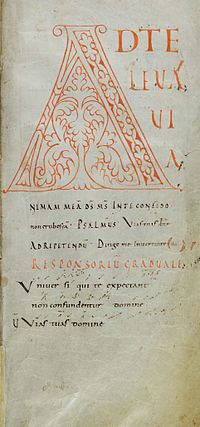 AD TE
LEUA
UI
A
NIMAM MEA DS MS IN TE CONFIDO
non erubescā. PSALMUS Vias tuas dne
AD REPETENDŪ Dirige me in veritate
RESPONSORIŪ GRADUALE
Univer si qui te expectant
non confundentur domine
V Vias tuas domine